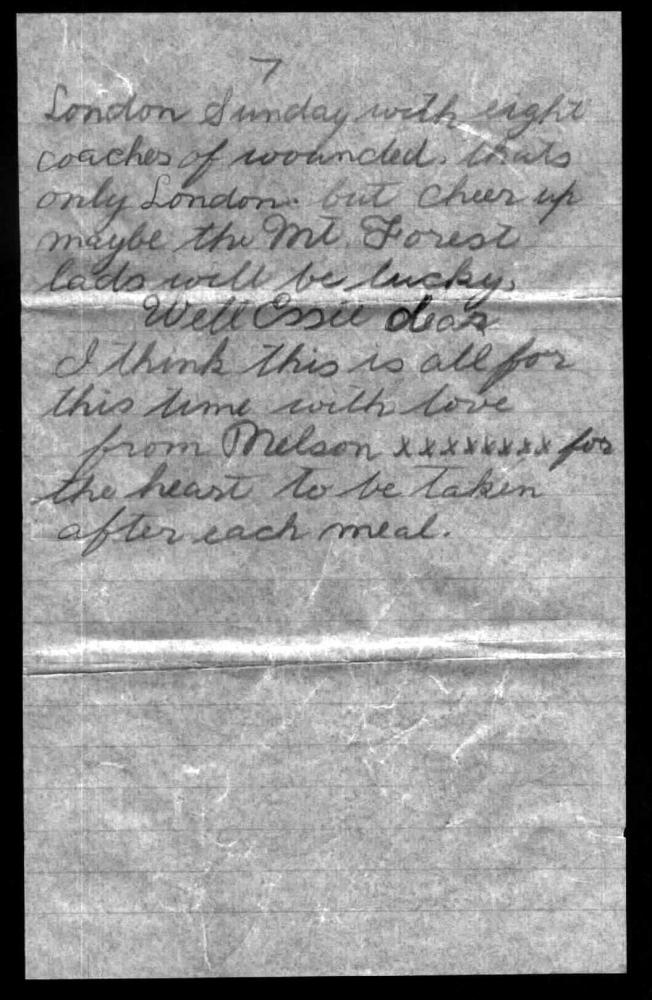 7
London Sunday with eight
coaches of wounded. thats
only London. but cheer up
maybe the Mt. Forest
lads will be lucky.
Well Essie dear
I think this is all for
this time with love
from Melson xxxxxxxx for
the heart to be taken
after each meal.